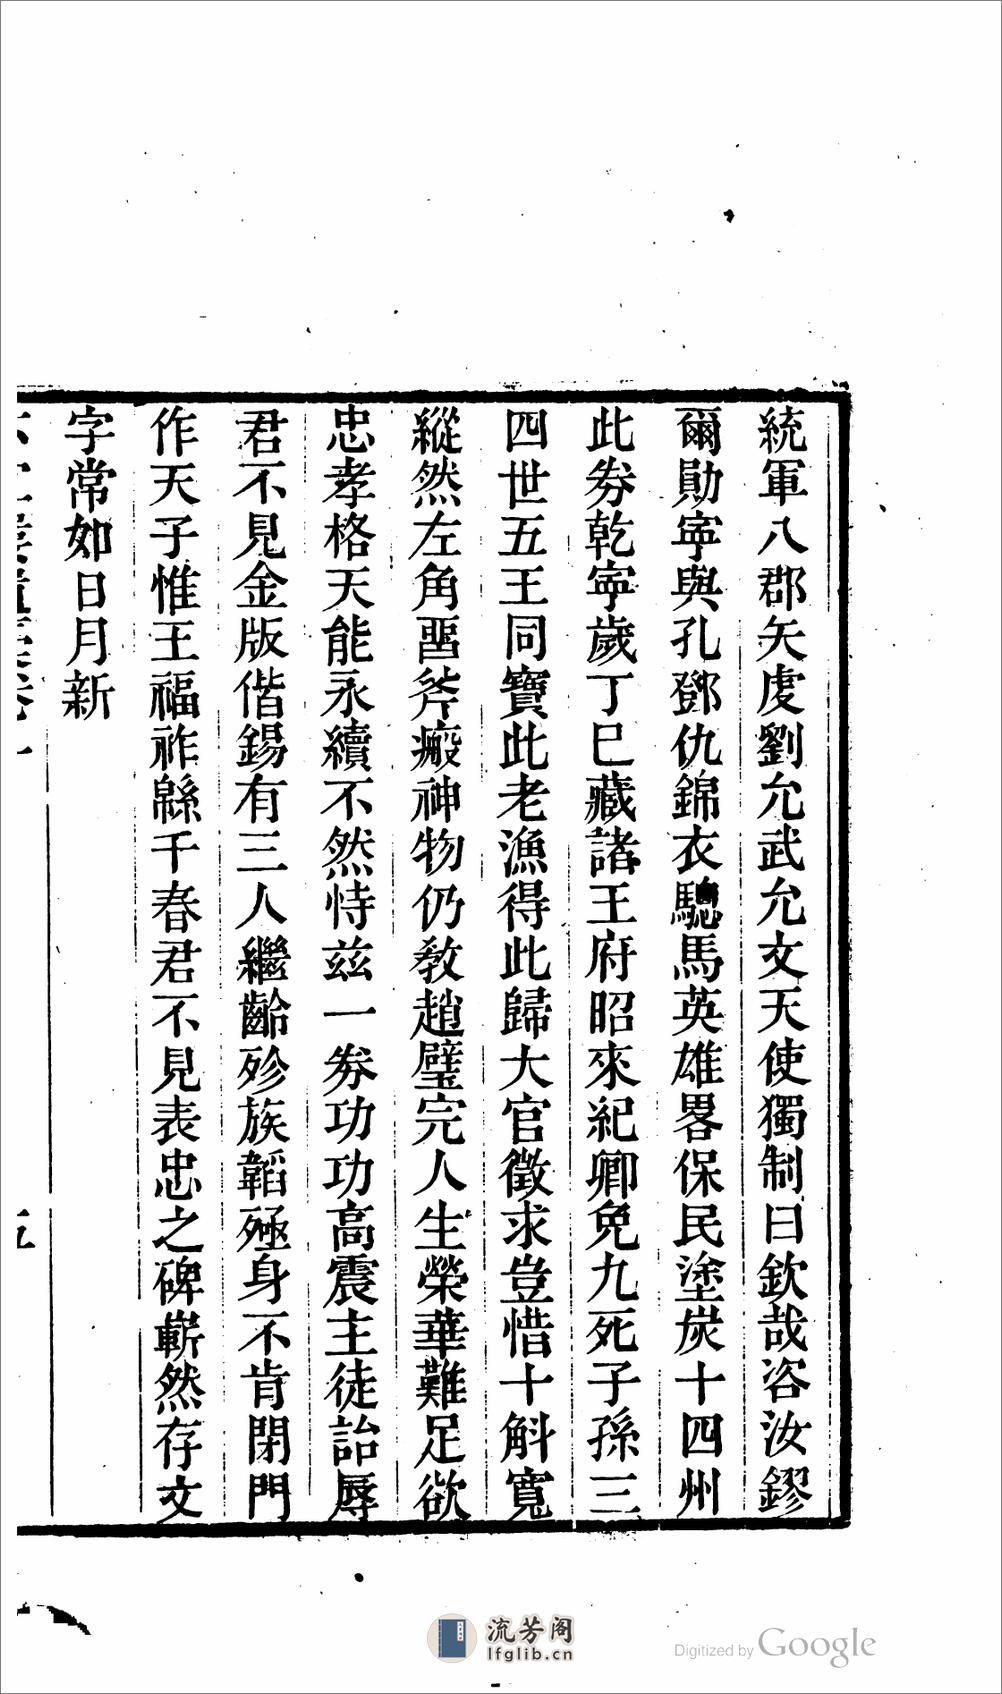 統軍八郡矢虔劉允武允文天使獨制曰欽哉咨汝鏐
爾勛寜與孔鄧仇錦衣驄馬英雄畧保民塗炭十四州
此劵乾寜歲丁巳藏諸王府昭來紀卿免九死子孫三
四世五王同寶此老漁得此歸大官徵求豈惜十斛寬
縱然左角齧斧瘢神物仍敎趙璧完人生榮華難足欲
忠孝格天能永續不然恃兹一劵功功高震主徒詒辱
君不見金版偕錫有三人繼齡殄族韜殛身不肯閉門
作天子惟王福祚緜千春君不見表忠之碑嶄然存文
字常如日月新
五
流芳阁
lfglib.cn
Digitized by Google